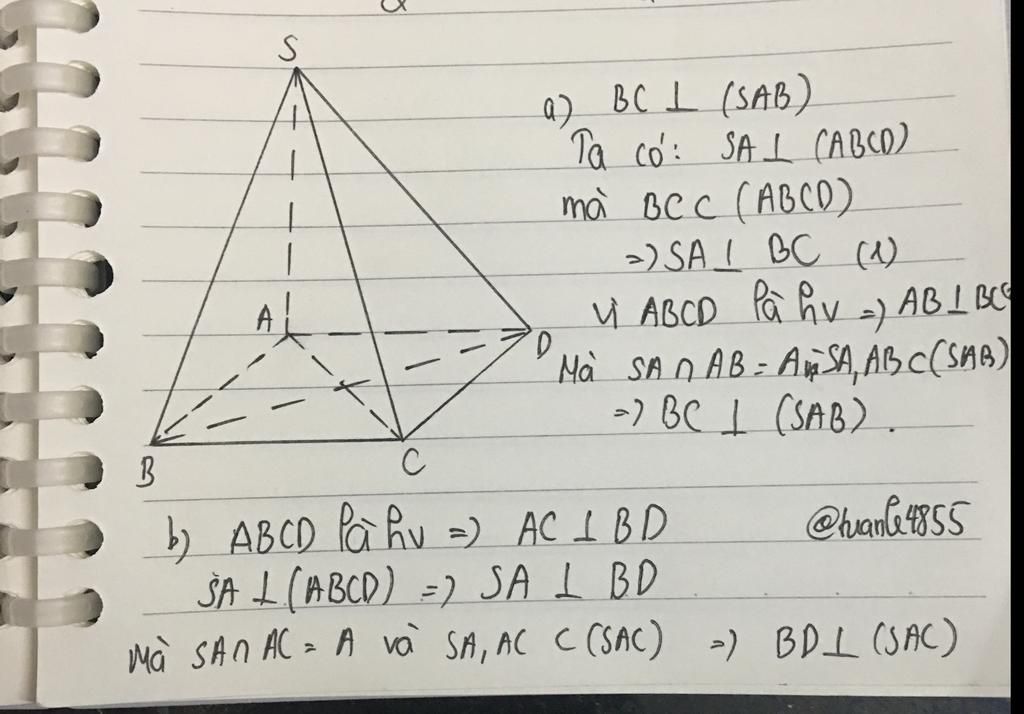 S
A
B
C
D
a) BC ⊥ (SAB)
Ta có: SA ⊥ (ABCD)
mà BC ⊂ (ABCD)
=> SA ⊥ BC (1)
Vì ABCD là hv => AB ⊥ BC
Mà SA ∩ AB = A và SA, AB ⊂ (SAB)
=> BC ⊥ (SAB).
b) ABCD là hv => AC ⊥ BD
@tuanle4855
SA ⊥ (ABCD) => SA ⊥ BD
Mà SA ∩ AC = A và SA, AC ⊂ (SAC) => BD ⊥ (SAC)